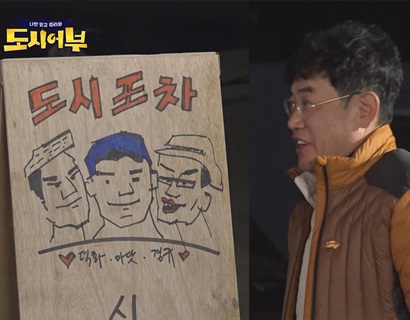 나만 믿고 따라와
도시어부
도시포차
덕화·마맛·경규
시